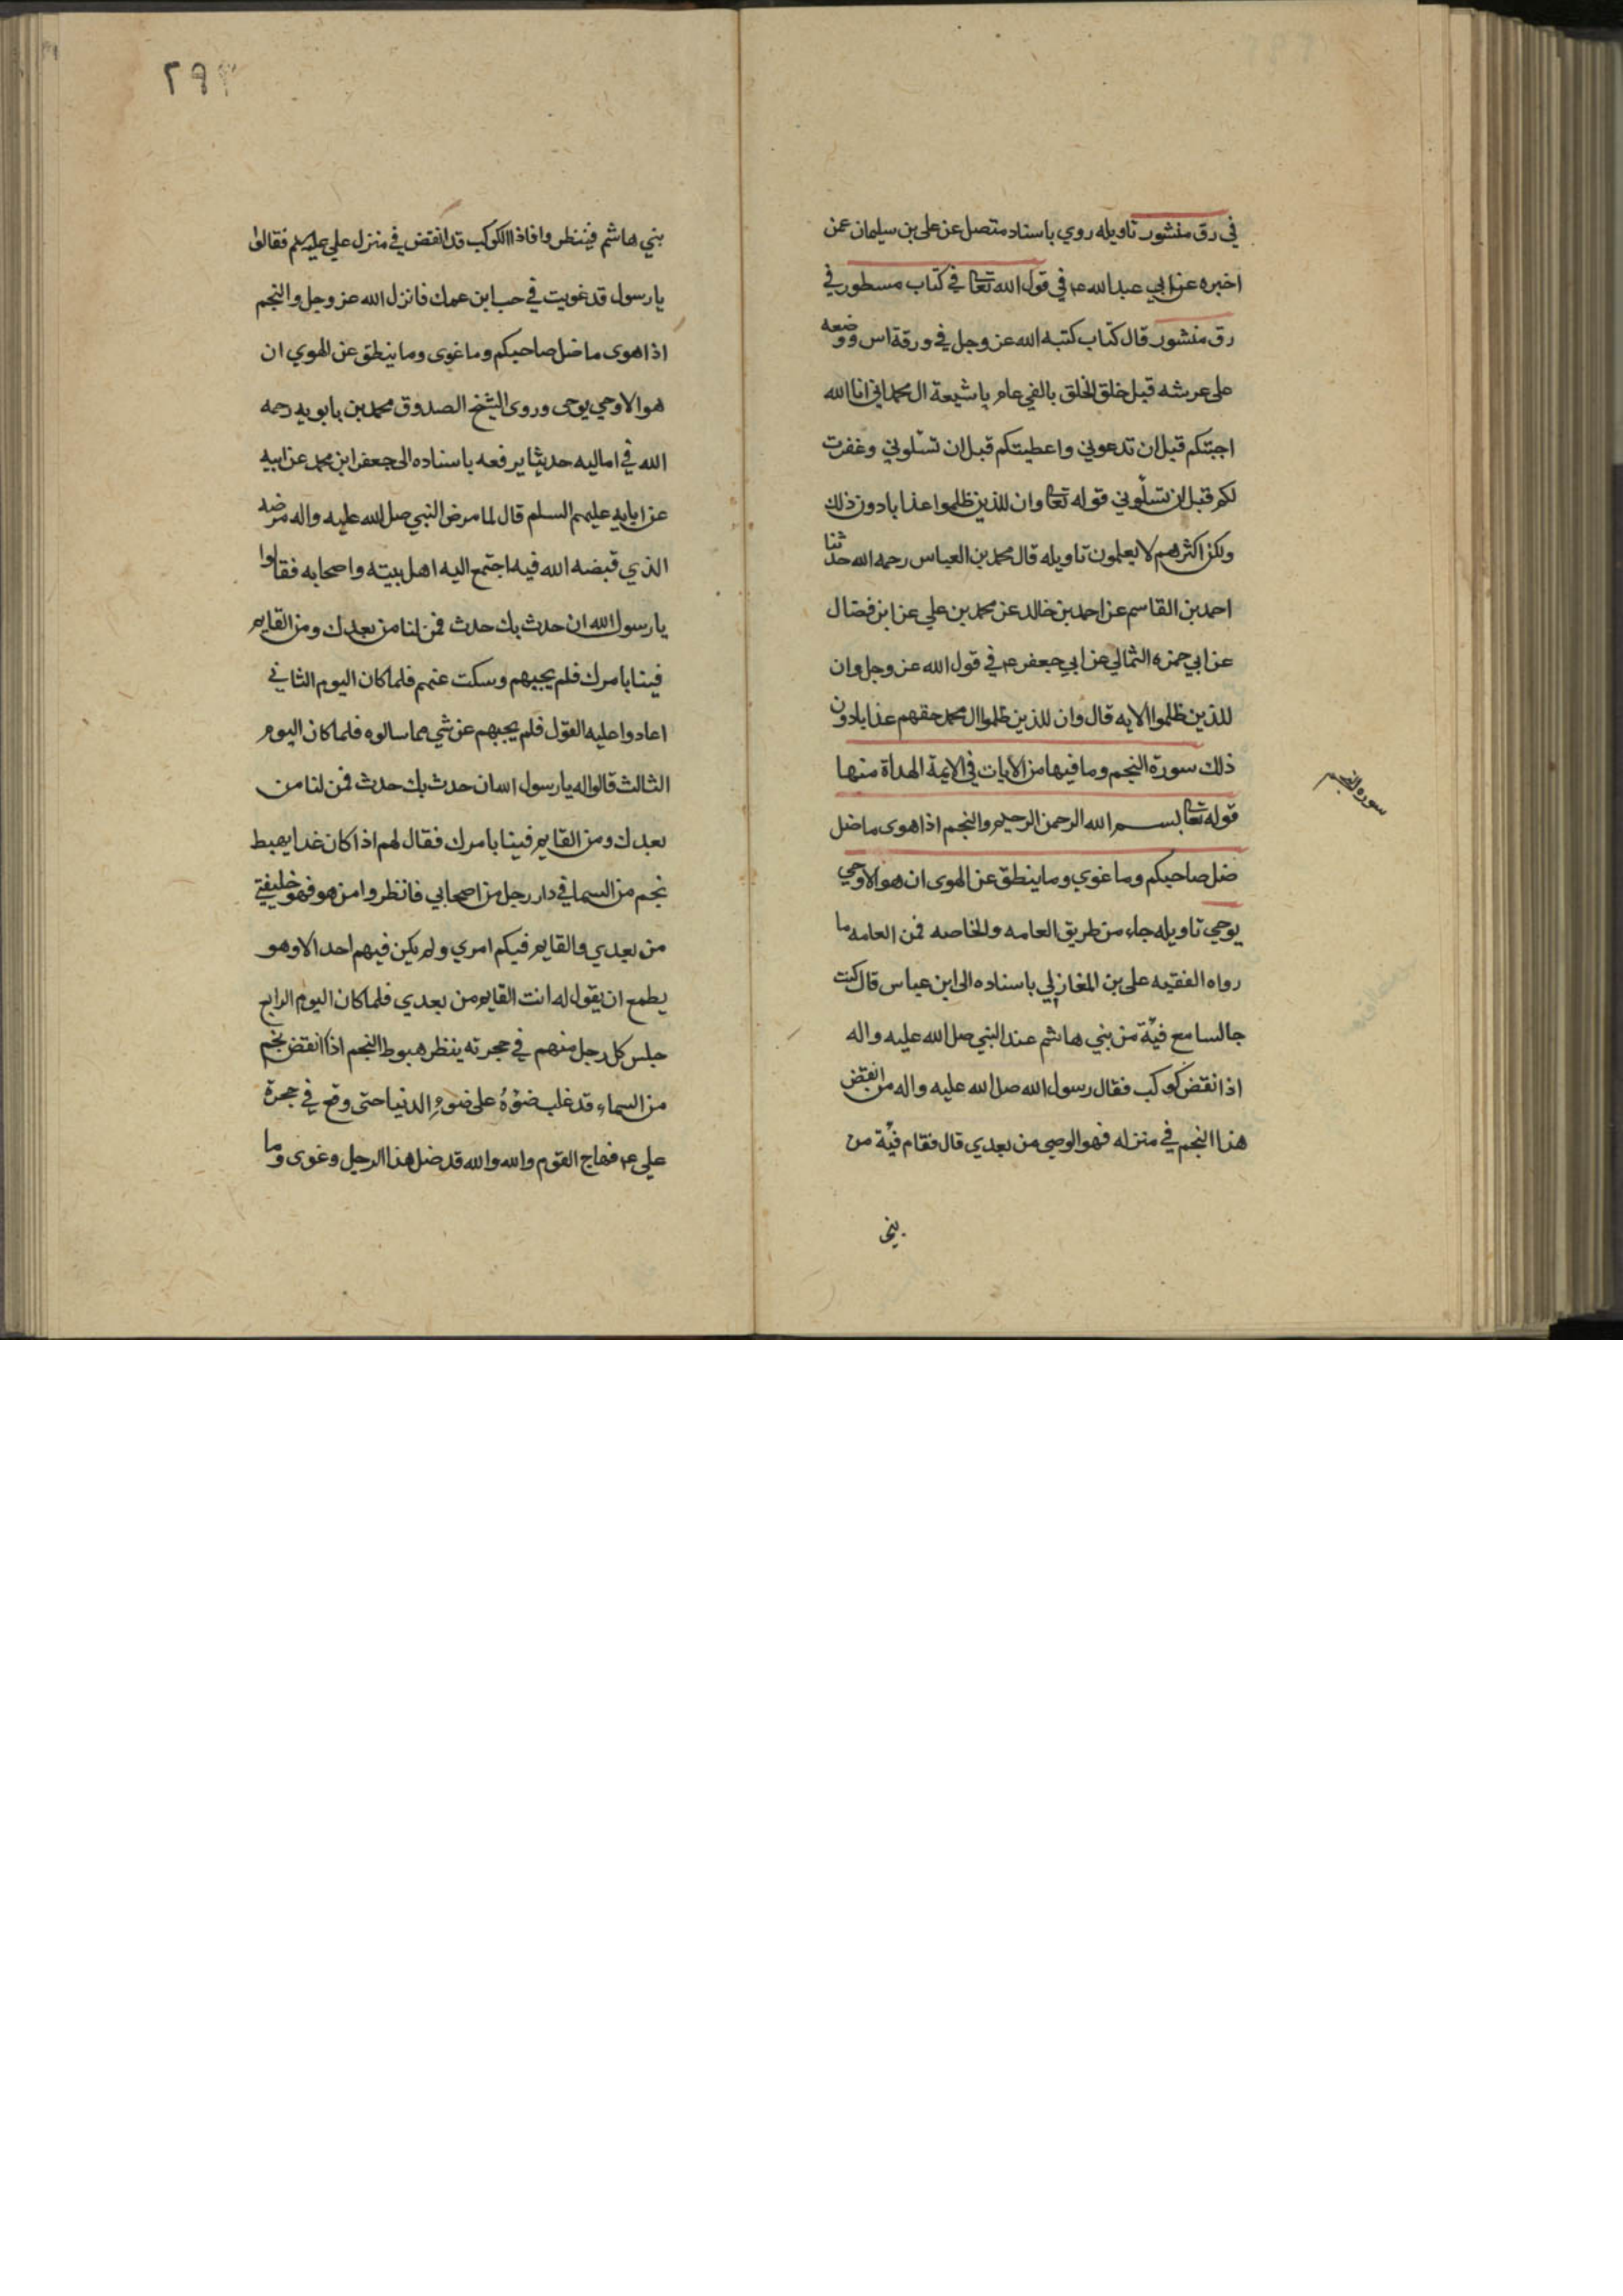 في رق منشور تاويله روي باسناد متصل عن علي بن سليمان عمن
اخبره عن ابي عبد الله ع في قول الله تعا في كتاب مسطور في
رق منشور قال كتاب كتبه الله عز وجل في ورقة اس ووضعه
على عرشه قبل خلق الخلق بالفي عام يا شيعة ال محمد اني انا الله
اجبتكم قبل ان تدعوني واعطيتكم قبل ان تسلوني وغفرت
لكم قبل ان تسلوني قوله تعا وان للذين ظلموا عذابا دون ذلك
ولكن اكثرهم لا يعلمون تاويله قال محمد بن العباس رحمه الله حدثنا
احمد بن القاسم عن احمد بن خالد عن محمد بن علي عن ابن فضال
عن ابي حمزه الثمالي عن ابي جعفر ع في قول الله عز وجل وان
للذين ظلموا الايه قال وان للذين ظلموا ال محمد حقهم عذابا دون
ذلك سورة النجم وما فيها من الايات في الايمة الهداة منها
قوله تعا بسم الله الرحمن الرحيم والنجم اذا هوى ما ضل
ضل صاحبكم وما غوي وما ينطق عن الهوى ان هو الا وحي
يوحي تاويله جاء من طريق العامه والخاصه فمن العامه ما
رواه الفقيه علي بن المغازلي باسناده الى ابن عباس قال كنت
جالسا مع فئة من بني هاشم عند النبي صل الله عليه واله
اذ انقض كوكب فقال رسول الله صل الله عليه واله من انقض
هذا النجم في منزله فهو الوصي من بعدي قال فقام فئة من
بني
سورة النجم
٢٩٢
بني هاشم فينظروا فاذا الكوكب قد انقض في منزل علي عليه السلم فقالوا
يا رسول قد غويت في حب ابن عمك فانزل الله عز وجل والنجم
اذا هوى ما ضل صاحبكم وما غوى وما ينطق عن الهوي ان
هو الا وحي يوحى وروى الشيخ الصدوق محمد بن بابويه رحمه
الله في اماليه حديثا يرفعه باسناده الى جعفر ابن محمد عن ابيه
عن ابايه عليهم السلم قال لما مرض النبي صل الله عليه واله مرضه
الذي قبضه الله فيه اجتمع اليه اهل بيته واصحابه فقالوا
يا رسول الله ان حدث بك حدث فمن لنا من بعدك ومن القايم
فينا بامرك فلم يجبهم وسكت عنهم فلما كان اليوم الثاني
اعادوا عليه القول فلم يجبهم عن شي مما سالوه فلما كان اليوم
الثالث قالوا له يا رسول الله ان حدث بك حدث فمن لنا من
بعدك ومن القايم فينا بامرك فقال لهم اذا كان غدا يهبط
نجم من السما في دار رجل من اصحابي فانظروا من هو فهو خليفتي
من بعدي والقايم فيكم امري ولم يكن فيهم احد الا وهو
يطمع ان يقول له انت القايم من بعدي فلما كان اليوم الرابع
جلس كل رجل منهم في حجرته ينظر هبوط النجم اذا انقض نجم
من السماء قد غلب ضوؤه على ضوء الدنيا حتى وقع في حجرة
علي ع فهاج القوم والله والله قد ضل هذا الرجل وغوى وما